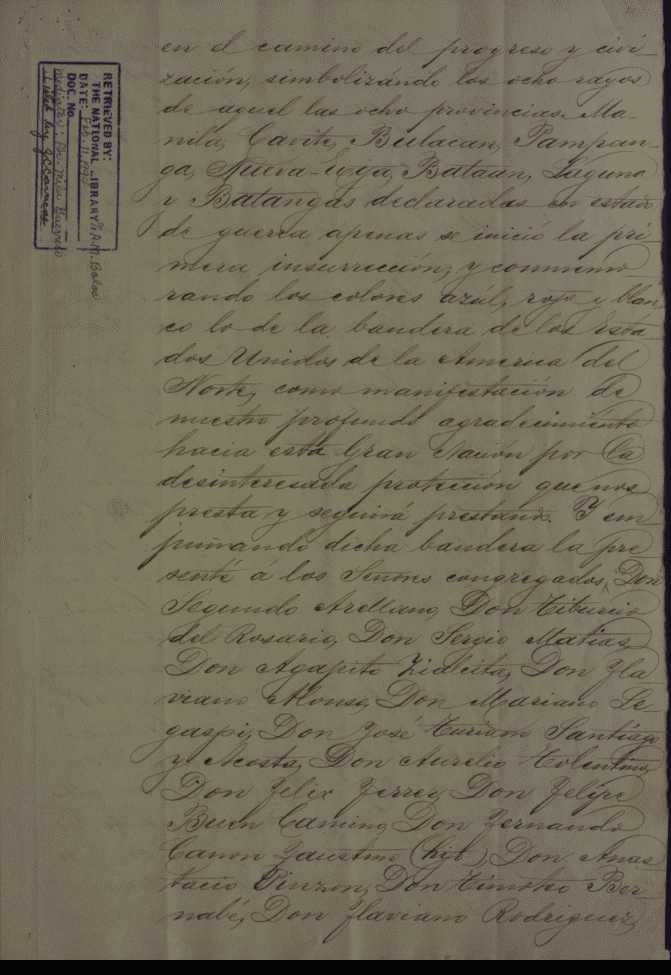 en el camino del progreso y civi
zación; simbolizándo los ocho rayos
de aquel las ocho provincias. Ma-
nila, Cavite, Bulacan, Pampan-
ga, Nueva-Ecija, Bataan, Laguna
y Batangas declaradas en estado
de guerra apenas se inició la pri
mera insurrección; y conmemo
rando los colores azúl, rojo y blan
co lo de la bandera de los Está
dos Unidos de la America del
Norte, como manifestación de
nuestro profundo agradecimiénto
hacia esta Gran Nación por la
desinteresada protección que nos
presta y seguirá prestando. Y em
puñando dicha bandera la pre
senté á los Señores congregados; Don
Segundo Arellano, Don Tiburcio
del Rosario, Don Sergio Matias,
Don Agapito Zialcita, Don Fla
viano Alonso, Don Mariano Le
gaspi, Don José Turiano Santiago
y Acosta, Don Aurelio Tolentino,
Don Felix Ferrer, Don Felipe
Buen Camino, Don Fernando
Canon Faustino (hijo), Don Anas
tacio Pinzon, Don Timoteo Ber-
nabé, Don Flaviano Rodriguez,
RETRIEVED BY:
THE NATIONAL LIBRARY
DATE: Feb. 11, 19
DOC. No.
Mediator: Dr. Milag Guerrero